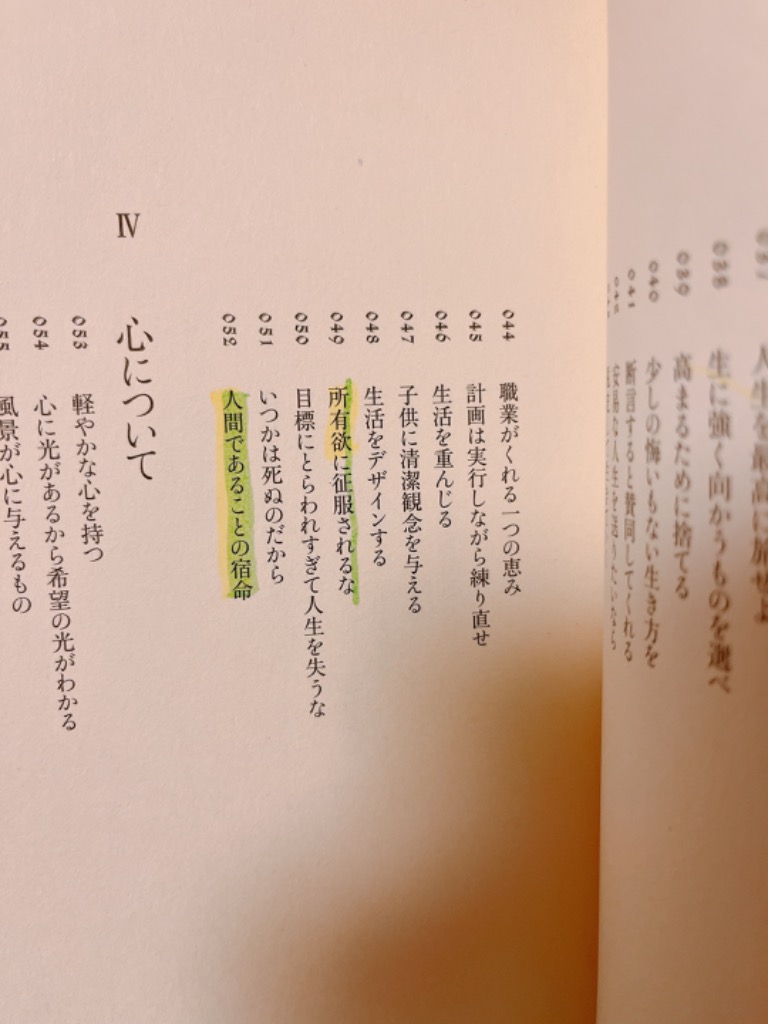 人生を最高に旅せよ
038 生に強く向かうものを選べ
039 高まるために捨てる
040 少しの悔いもない生き方を
041 断言すると賛同してくれる
安易な人生を送りたいなら
044 職業がくれる一つの恵み
045 計画は実行しながら練り直せ
046 生活を重んじる
047 子供に清潔観念を与える
048 生活をデザインする
049 所有欲に征服されるな
050 目標にとらわれすぎて人生を失うな
051 いつかは死ぬのだから
052 人間であることの宿命
Ⅳ 心について
053 軽やかな心を持つ
054 心に光があるから希望の光がわかる
055 風景が心に与えるもの